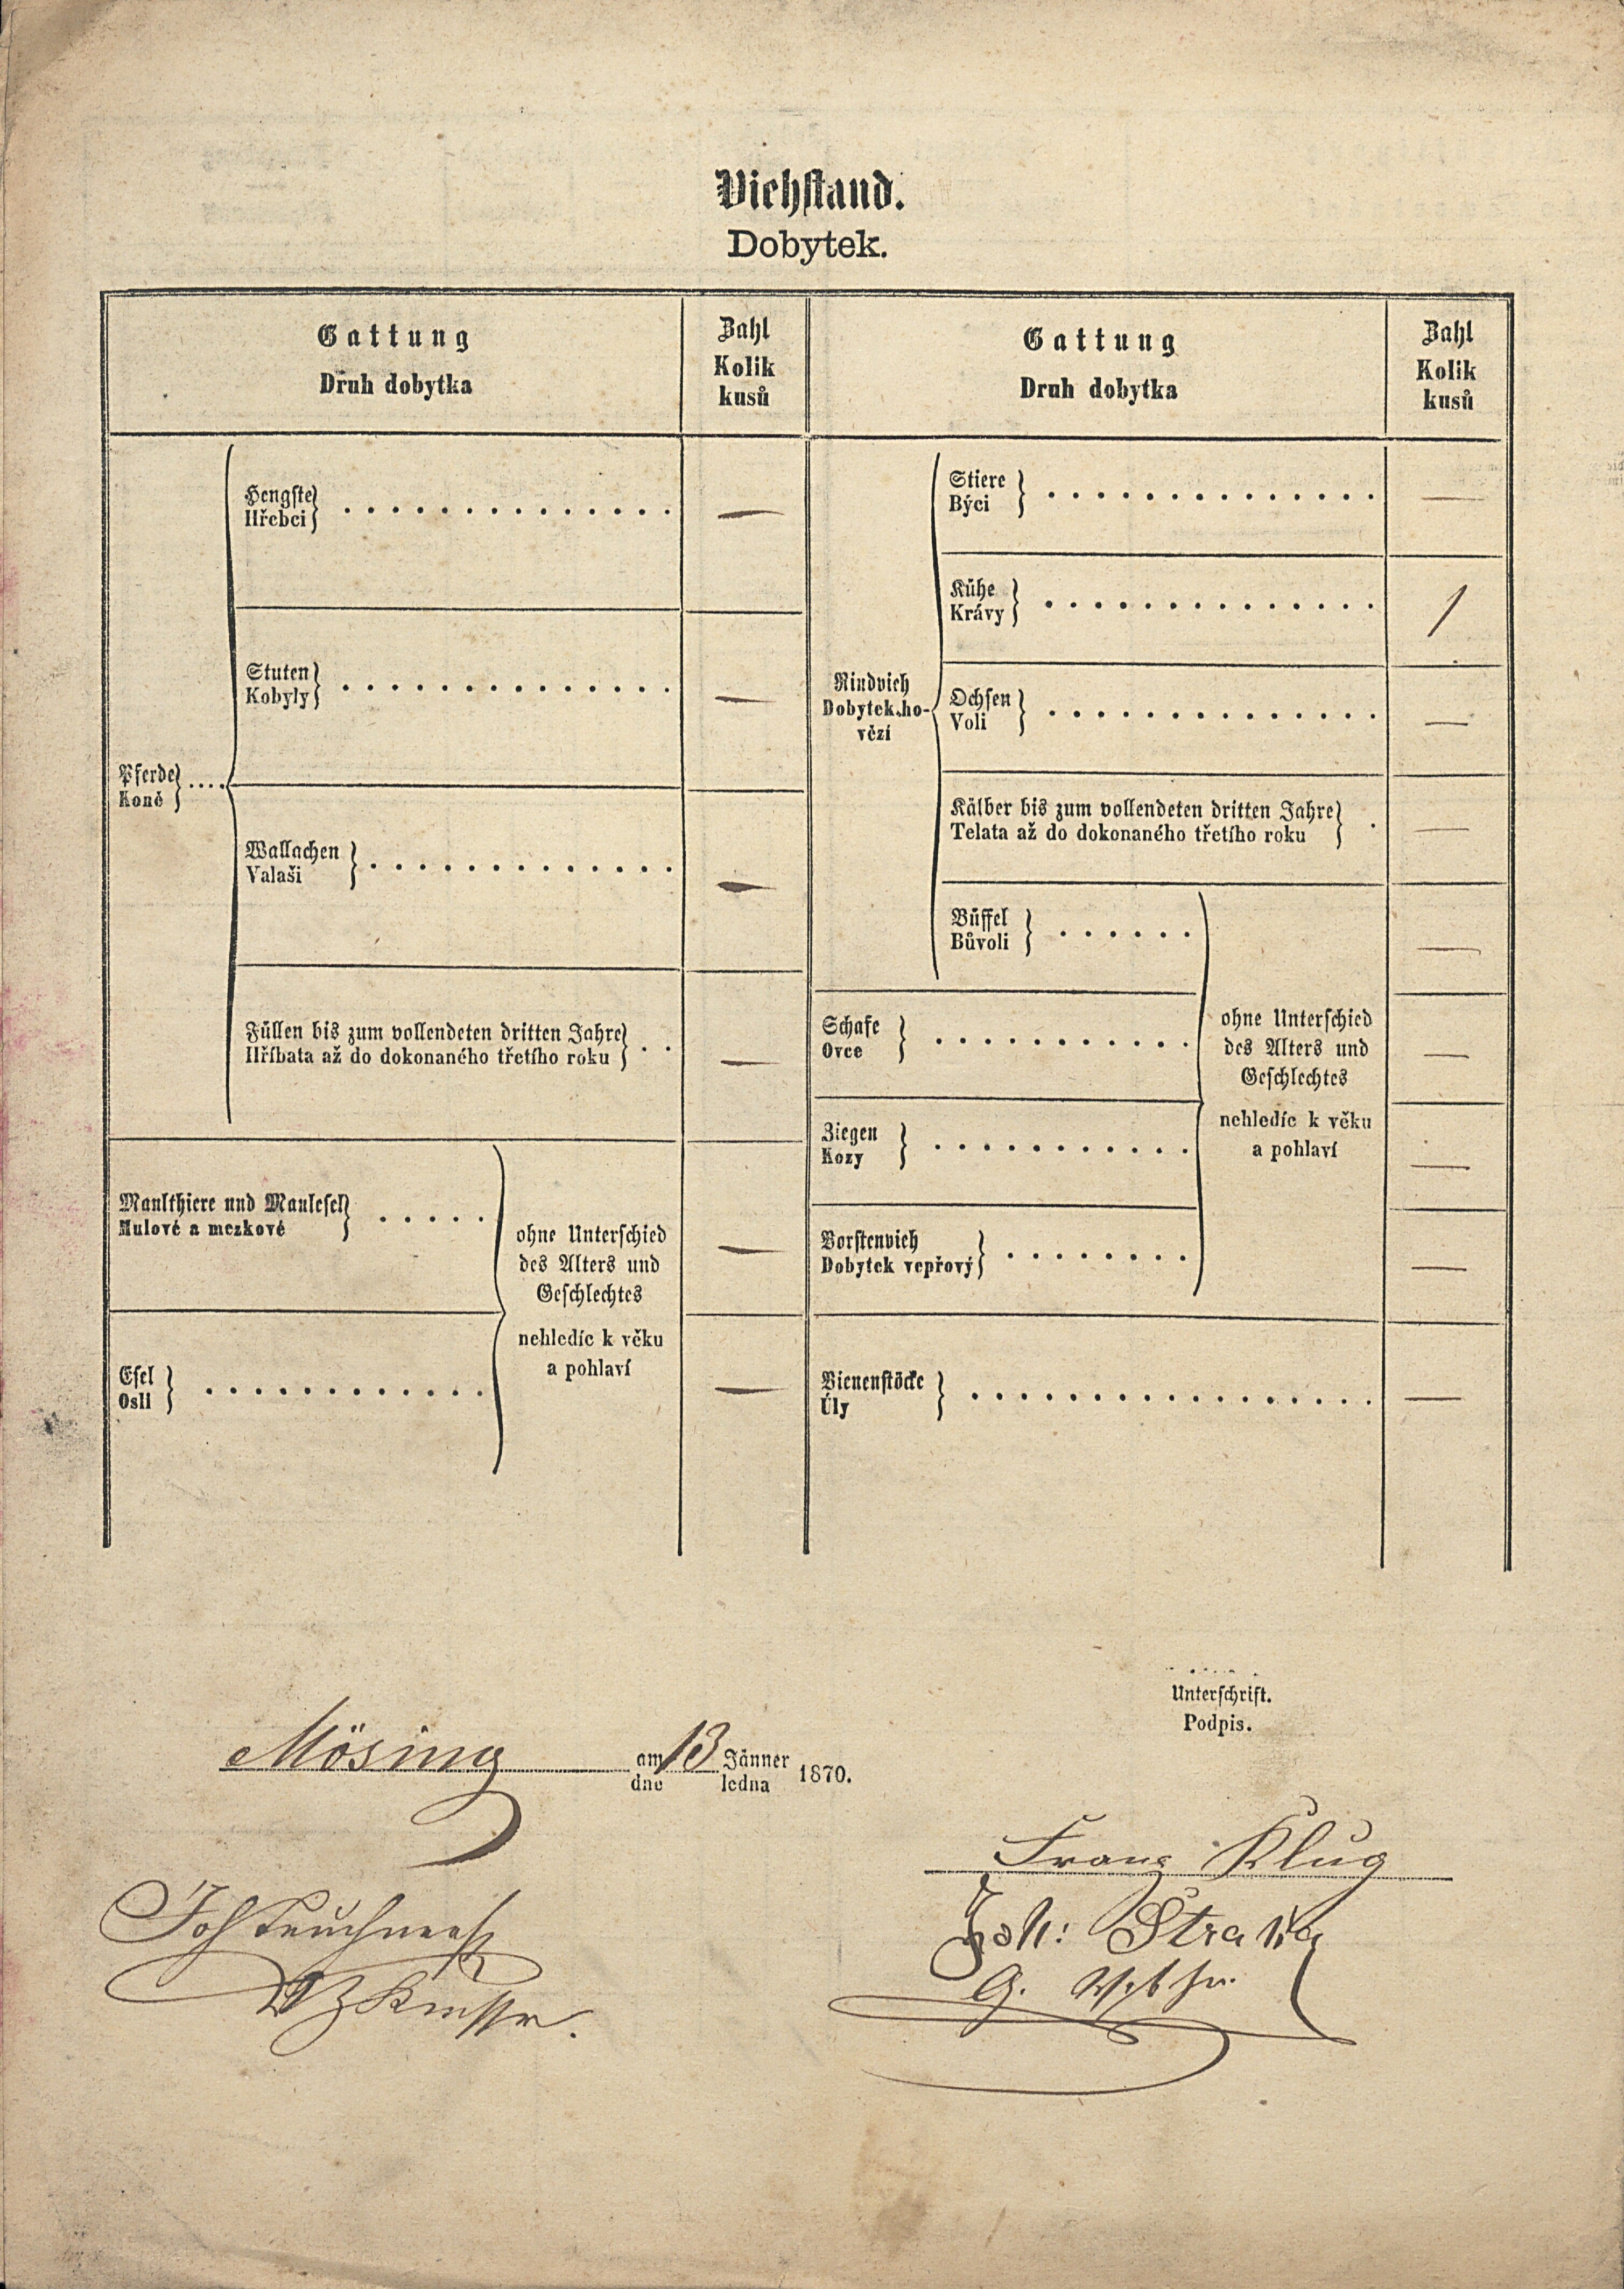 Viehstand.
Dobytek.
Gattung
Druh dobytka
Zahl
Kolik
kusů
Hengste
Hřebci
—
Stuten
Kobyly
—
Pferde
Koně
Wallachen
Valaši
—
Füllen bis zum vollendeten dritten Jahre
Hříbata až do dokonaného třetího roku
—
Maulthiere und Maulesel
Mulové a mezkové
—
Esel
Osli
—
ohne Unterschied
des Alters und
Geschlechtes
nehledíc k věku
a pohlaví
Gattung
Druh dobytka
Zahl
Kolik
kusů
Stiere
Býci
—
Kühe
Krávy
1
Rindvieh
Dobytek ho-
vězí
Ochsen
Voli
—
Kälber bis zum vollendeten dritten Jahre
Telata až do dokonaného třetího roku
—
Büffel
Bůvoli
—
Schafe
Ovce
—
Ziegen
Kozy
—
Borstenvieh
Dobytek vepřový
—
ohne Unterschied
des Alters und
Geschlechtes
nehledíc k věku
a pohlaví
Bienenstöcke
Úly
—
Unterschrift.
Podpis.
Mösing am 13 Jänner 1870.
dne ledna
Franz Klug
Joh: Straka